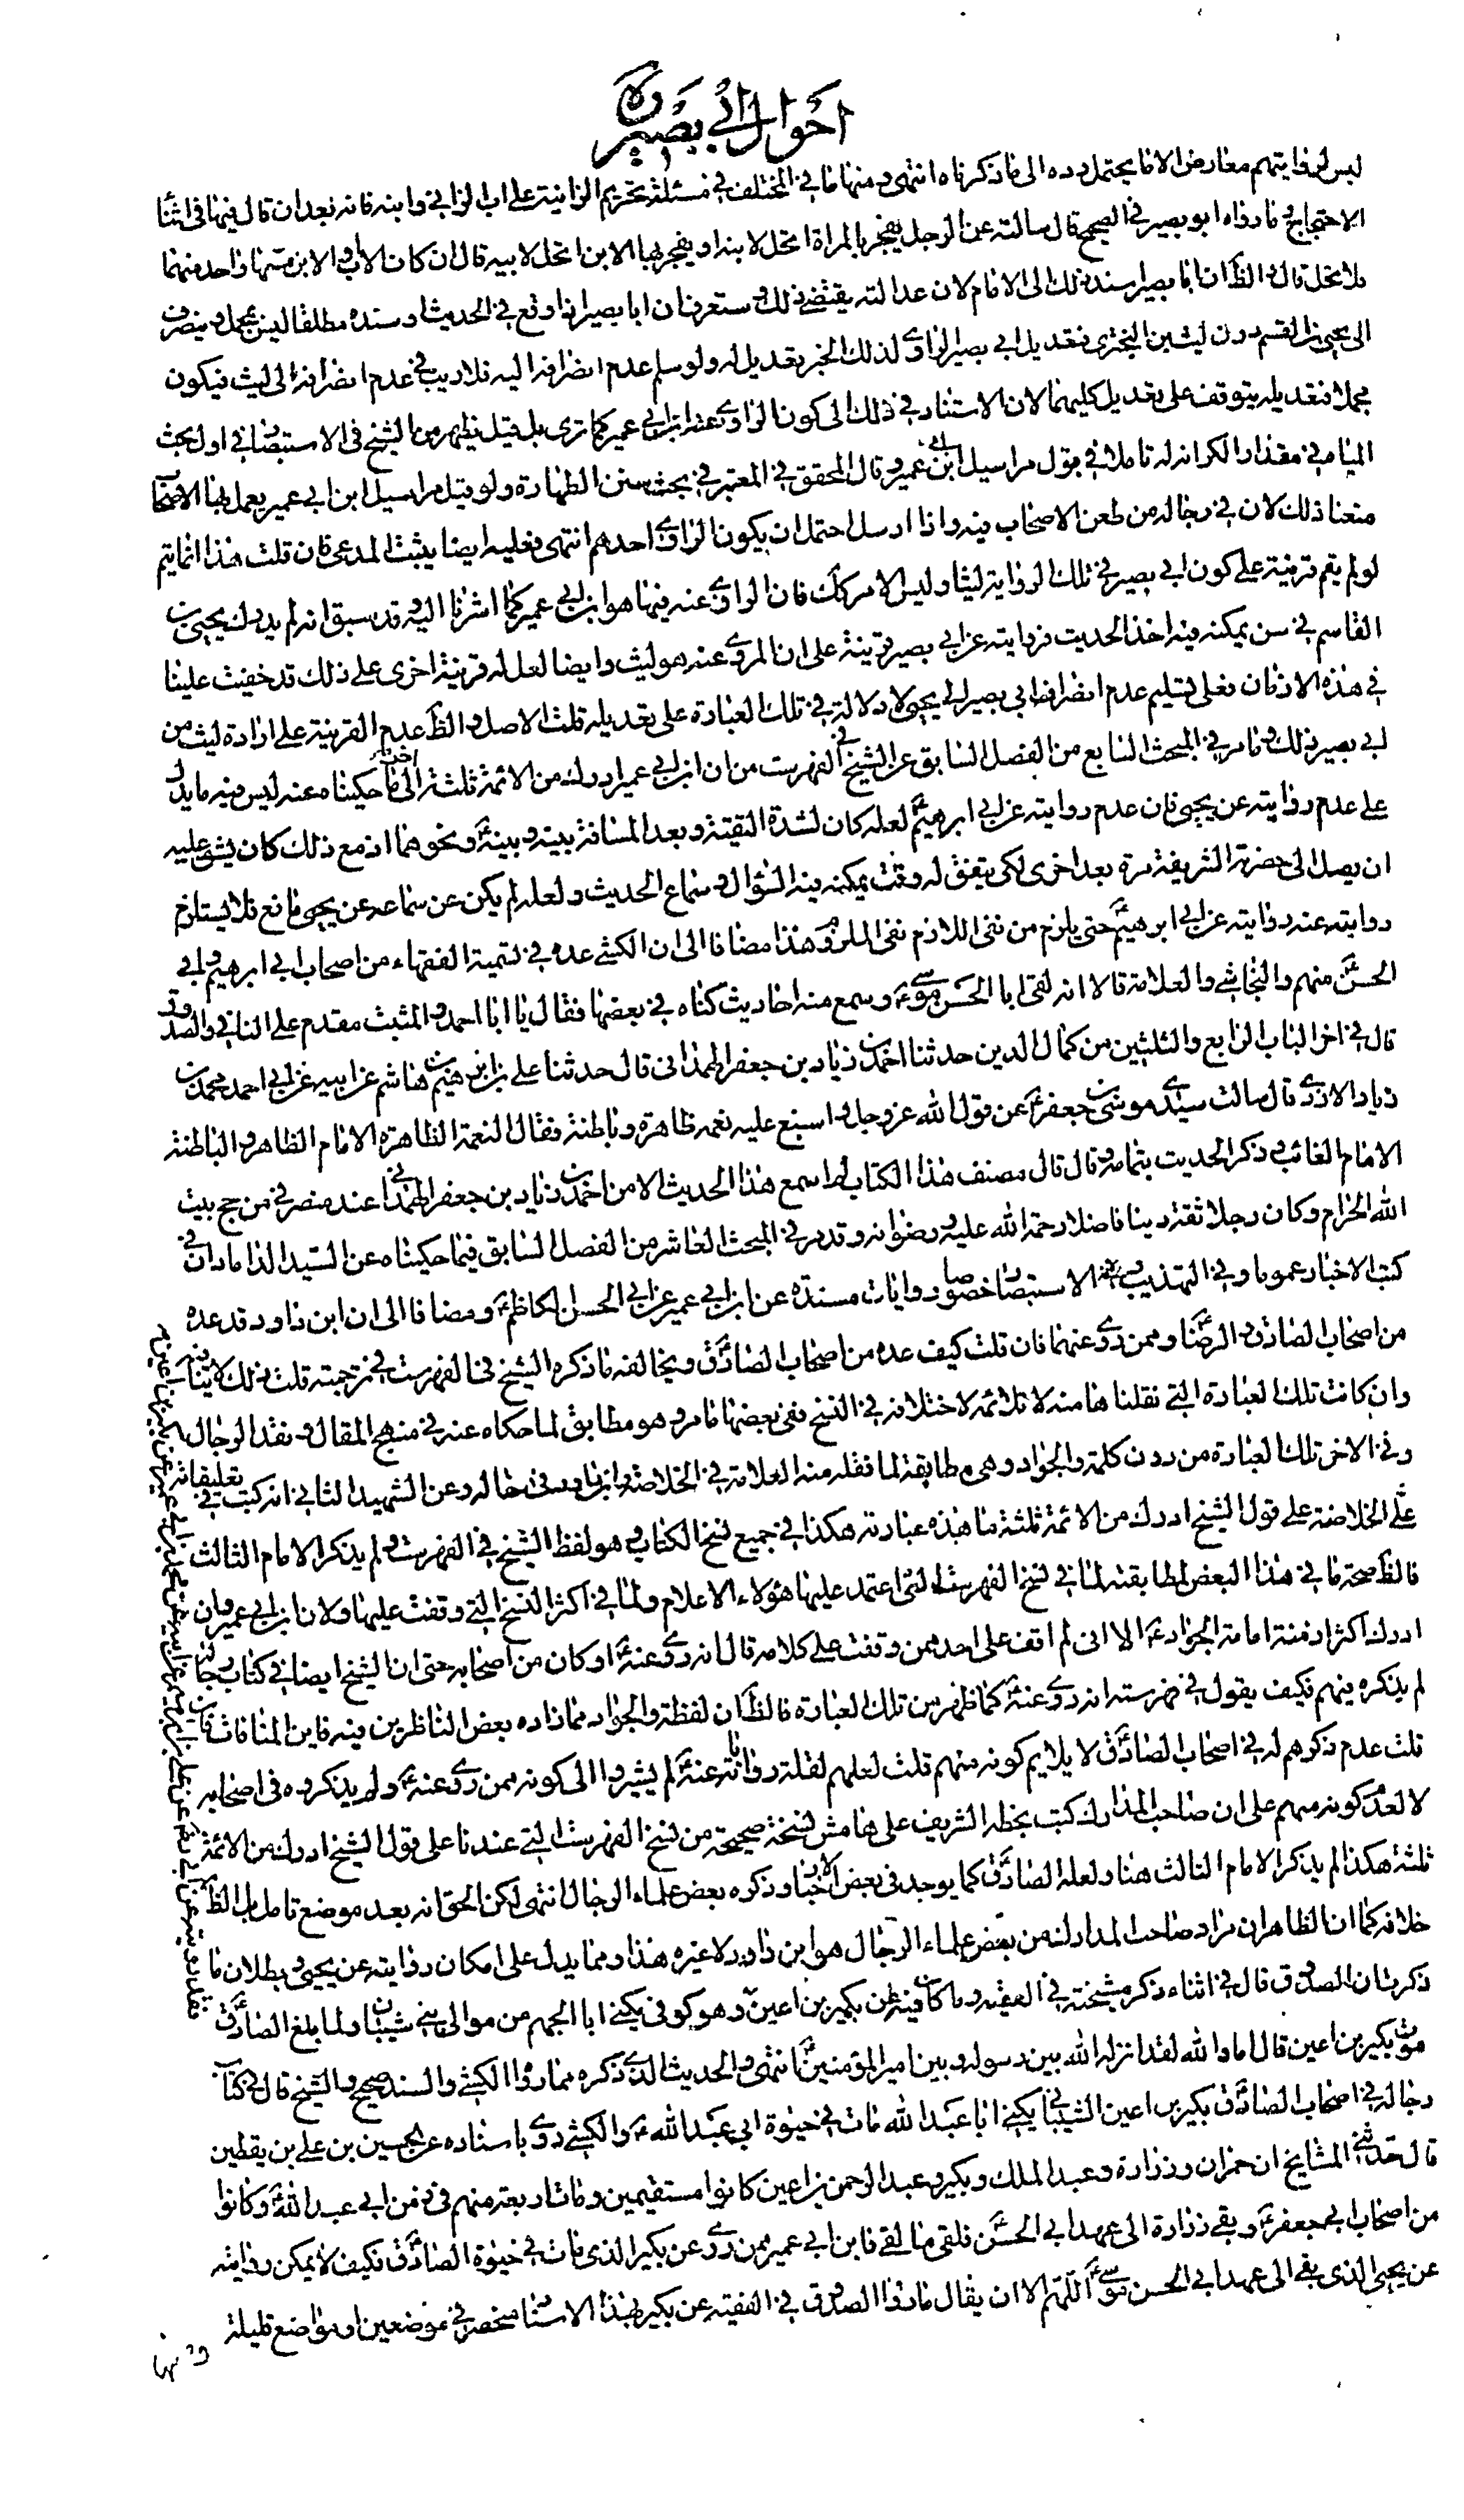 احوال ابي بصير
ليس لروايتهم معارض الا ما يحتمل رده الى ما ذكرناه انتهى ومنها ما في المختلف في مسئلة تحريم الزانية على اب الزاني وابنه فانه بعد ان قال فيها في اثناء
الاحتجاج وما رواه ابو بصير في الصحيح قال سالته عن الرجل يفجر بالمراة اتحل لابنه او يفجر بها الابن اتحل لابيه قال ان كان الاب او الابن مسها واحد منهما
فلا تحل قال والظ ان ابا بصير اسند ذلك الى الامام لان عدالته يقتضي ذلك وستعرف ان ابا بصير اذا وقع في الحديث او سنده مطلقا ليس بمجمل وينصرف
الى يحيى بن القسم دون ليث بن البختري فتعديل ابي بصير الراوي لذلك الخبر تعديل له ولو سلم عدم انصرافه اليه فلا ريب في عدم انصرافه الى ليث فيكون
مجملا فتعديله يتوقف على تعديل كليهما لان الاستناد في ذلك الى كون الراوي عنه ابن ابي عمير كما ترى بل قيل يظهر من الشيخ في الاستبصار في اول بحث
المياه في مقدار الكر انه له تامل في قبول مراسيل ابن ابي عمير وقال المحقق في المعتبر في بحث سنن الطهارة ولو قيل مراسيل ابن ابي عمير يعمل بها الاصحاب
منعنا ذلك لان في رجاله من طعن الاصحاب فيه واذا ارسل احتمل ان يكون الراوي احدهم انتهى وعليه ايضا يثبت المدعى فان قلت هذا انما يتم
لو لم يقم قرينة على كون ابي بصير في تلك الرواية ليثا وليس الامر كك فان الراوي عنه فيها هو ابن ابي عمير كما اشرنا اليه وقد سبق انه لم يدرك يحيى بن
القاسم في سن يمكنه فيه اخذ الحديث فروايته عن ابي بصير قرينة على ان المروي عنه هو ليث وايضا لعل له قرينة اخرى على ذلك قد خفيت علينا
في هذه الازمان فعلى تسليم عدم انصراف ابي بصير الى يحيى لا دلالة في تلك العبارة على تعديله قلت الاصل والظ عدم القرينة على ارادة ليث من
ابي بصير ذلك وما مر في المبحث السابع من الفصل السابق عن الشيخ في الفهرست من ان ابن ابي عمير ادرك من الائمة ثلثة الى اخر ما حكيناه عنه ليس فيه ما يدل
على عدم روايته عن يحيى فان عدم روايته عن ابي ابرهيم ع لعله كان لشدة التقية وبعد المسافة بينه وبينه ع ونحوهما اذ مع ذلك كان يشق عليه
ان يصل الى حضرته الشريفة مرة بعد اخرى لكي يتفق له وقت يمكنه فيه السؤال وسماع الحديث ولعله لم يكن عن سماعه عن يحيى مانع فلا يستلزم
روايته عنه روايته عن ابي ابرهيم ع حتى يلزم من نفي اللازم نفي الملزوم هذا مضافا الى ان الكشي عده في تسمية الفقهاء من اصحاب ابي ابرهيم وابي
الحسن ع منهم والنجاشي والعلامة قالا انه لقى ابا الحسن موسى ع وسمع منه احاديث كناه في بعضها فقال يا ابا احمد والمثبت مقدم على النافي والصدوق
قال في اخر الباب الرابع والثلثين من كمال الدين حدثنا احمد بن زياد بن جعفر الهمداني قال حدثنا علي بن ابرهيم بن هاشم عن ابيه عن ابي احمد محمد بن
زياد الازدي قال سالت سيدي موسى بن جعفر ع عن قول الله عز وجل واسبغ عليه نعمه ظاهرة وباطنة فقال النعمة الظاهرة الامام الظاهر والباطنة
الامام الغائب وذكر الحديث بتمامه وقال قال مصنف هذا الكتاب لم اسمع هذا الحديث الا من احمد بن زياد بن جعفر الهمداني عند منصرفي من حج بيت
الله الحرام وكان رجلا ثقة دينا فاضلا رحمة الله عليه ورضوانه وقد مر في المبحث العاشر من الفصل السابق فيما حكيناه عن السيد الداماد ان في
كتب الاخبار عموما وفي التهذيب والاستبصار خصوصا روايات مسندة عن ابن ابي عمير عن ابي الحسن الكاظم ع ومضافا الى ان ابن داود قد عده
من اصحاب الصادق والرضا ع وممن روى عنهما فان قلت كيف عده من اصحاب الصادق ع ويخالفه ما ذكره الشيخ في الفهرست في ترجمته قلت ذلك لا ينافيه
وان كانت تلك العبارة التي نقلناها منه لا تلائمه لاختلافه في النسخ ففي بعضها ما مر وهو مطابق لما حكاه عنه في منهج المقال ونقد الرجال
وفي الاخر تلك العبارة من دون كلمة والجواد وهي مطابقة لما نقله منه العلامة في الخلاصة وابن داود في رجاله وعن الشهيد الثاني انه كتب في تعليقاته
على الخلاصة على قول الشيخ ادرك من الائمة ثلثة ما هذه عبارته هكذا في جميع نسخ الكتاب وهو لفظ الشيخ في الفهرست ولم يذكر الامام الثالث
فالظ صحة ما في هذا البعض لمطابقته لما في نسخ الفهرست التي اعتمد عليها هؤلاء الاعلام ولما في اكثر النسخ التي وقفت عليها ولان ابن ابي عمير وان
ادرك اكثر ازمنة امامة الجواد ع الا اني لم اقف على احد ممن وقفت على كلامه قال انه روى عنه ع او كان من اصحابه حتى ان الشيخ ايضا في كتاب رجاله
لم يذكره فيهم فكيف يقول في فهرسته انه روى عنه ع كما ظهر من تلك العبارة فالظ ان لفظة والجواد مما زاده بعض الناظرين فيه فاين المنافات فان
قلت عدم ذكرهم له في اصحاب الصادق ع لا يلايم كونه منهم قلت لعلهم لقلة رواياته عنه ع لم يشيروا الى كونه ممن روى عنه ع ولم يذكروه في اصحابه
لا لعدم كونه منهم على ان صاحب المدارك كتب بخطه الشريف على هامش نسخة صحيحة من نسخ الفهرست التي عندنا على قول الشيخ ادرك من الائمة
ثلثة هكذا لم يذكر الامام الثالث هنا ولعله الصادق ع كما يوجد في بعض الاخبار وذكره بعض علماء الرجال انتهى لكن الحق انه بعد موضع تامل بل الظ
خلافه كما ان الظاهر ان مراد صاحب المدارك من بعض علماء الرجال هو ابن داود لا غيره هذا ومما يدل على امكان روايته عن يحيى وبطلان ما
ذكرت ان الصدوق قال في اثناء ذكر مشيخته في الفقيه وما كان فيه عن بكير بن اعين وهو كوفي يكنى ابا الجهم من موالي بني شيبان ولما بلغ الصادق ع
موت بكير بن اعين قال اما والله لقد انزله الله بين رسوله وبين امير المؤمنين ع انتهى والحديث الذي ذكره مما رواه الكشي والسند صحيح والشيخ قال في كتاب
رجاله في اصحاب الصادق ع بكير بن اعين الشيباني يكنى ابا عبد الله مات في حيوة ابي عبد الله ع والكشي روى باسناده عن الحسين بن علي بن يقطين
قال حدثني المشايخ ان حمران وزرارة وعبد الملك وبكير وعبد الرحمن بن اعين كانوا مستقيمين ومات اربعة منهم في زمن ابي عبد الله ع وكانوا
من اصحاب ابي جعفر ع وبقي زرارة الى عهد ابي الحسن ع فلقى ما لقي فابن ابي عمير ممن روى عن بكير الذي مات في حيوة الصادق ع فكيف لا يمكن روايته
عن يحيى الذي بقي الى عهد ابي الحسن موسى ع اللهم الا ان يقال ما رواه الصدوق في الفقيه عن بكير بهذا الاسناد منحصر في موضعين او مواضع قليلة